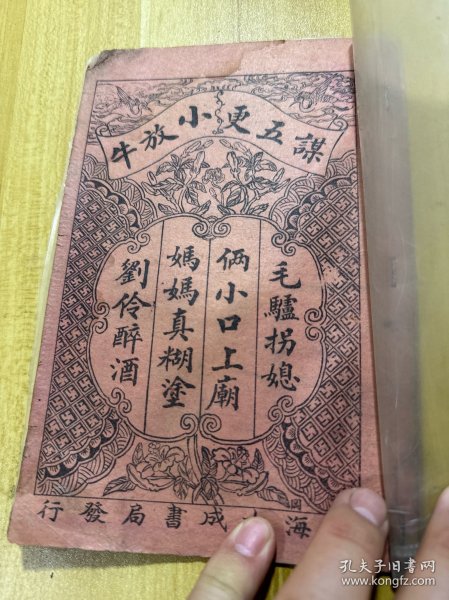 謀五更小放牛
毛驢拐媳
倆小口上廟
媽媽真糊塗
劉伶醉酒
海成書局發行
孔夫子旧书网
www.kongfz.com